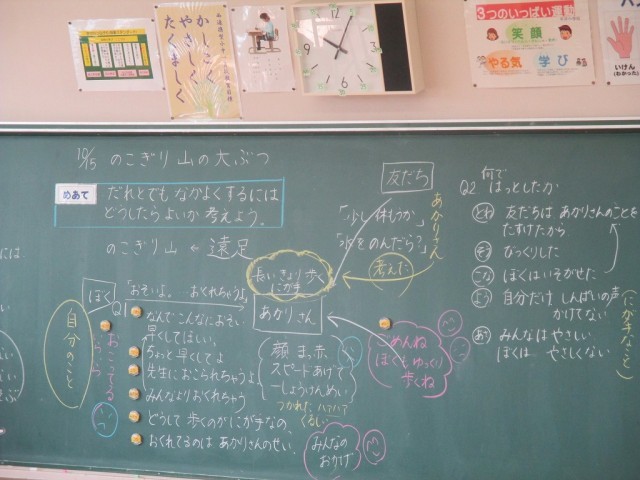 かしこく
やさしく
たくましく
12
3
6
9
3つのいっぱい運動
笑顔
やる気 学び
いけん
10/15 のこぎり山の大ぶつ
めあて
だれとでもなかよくするには
どうしたらよいか考えよう。
のこぎり山 ← 遠足
友だち
「少し休もうか」
「水をのんだら?」
あかりさん
考えた
長いきょり歩く
にが手
あかりさん
ぼく
Q1
「おそいよ。 おくれちゃうよ」
自分のこと
おこってる
なんでこんなにおそい
早くしてほしい
ちゃんと早くしてよ
先生におこられちゃうよ
みんなよりおくれちゃう
どうして歩くのがにが手なの、
おくれてるのはあかりさんのせい。
顔 まっ赤
スピードあげて
一しょうけんめい
つかれた ハァハァ
くるしい
みんなの
おかげ
ごめんね
ぼくもゆっくり
歩くね
Q2 何で
はっとしたか
友だちは あかりさんのことを
たすけたから
びっくりした
ぼくはいそがせた
自分だけ しんぱいの声
かけてない
みんなはやさしい
ぼくは やさしくない
(にが手なこと)